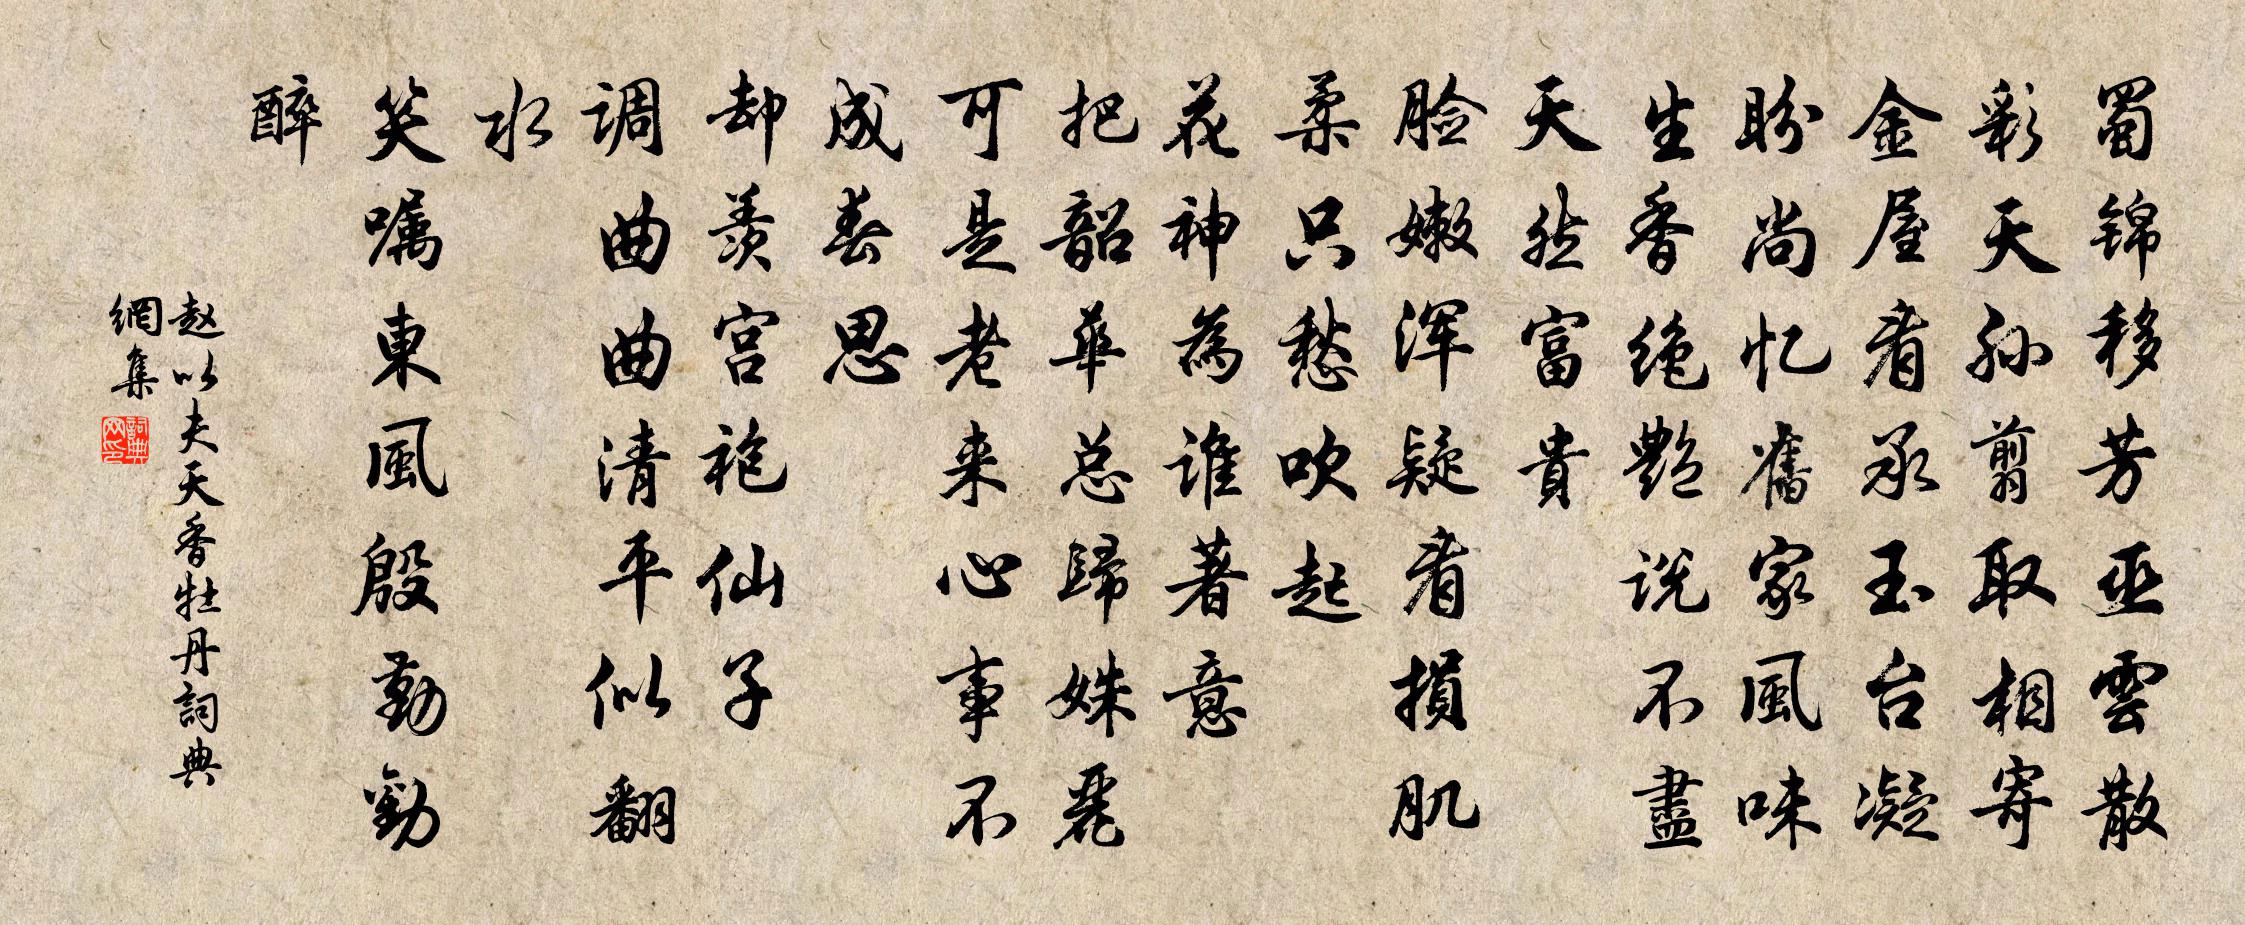 蜀锦移芳巫雲散
彩天孙剪取相寄
金屋看承玉台凝
盼尚忆舊家風味
生香绝艷说不盡
天然富貴
脸嫩浑疑看損肌
柔只愁吹起
花神為谁著意
把韶華总歸姝麗
可是老来心事不
成春思
却羡宫袍仙子
调曲曲清平似翻
水
笑嘱東風殷勤勸
醉
赵以夫天香牡丹詞典
網集
詞典
网印